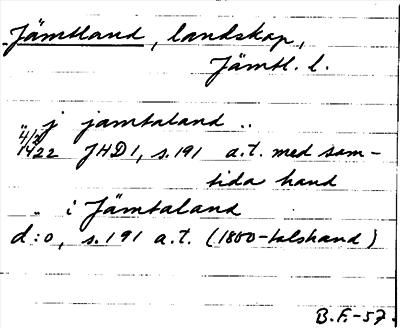 Jämtland, landskap,
Jämtl. l.
" j jamtaland ..
4/2 1422 JHD1, s.191 a.t. med sam-
tida hand
" i Jämtaland
d:o, s.191 a.t. (1800-talshand)
B.F.-57.